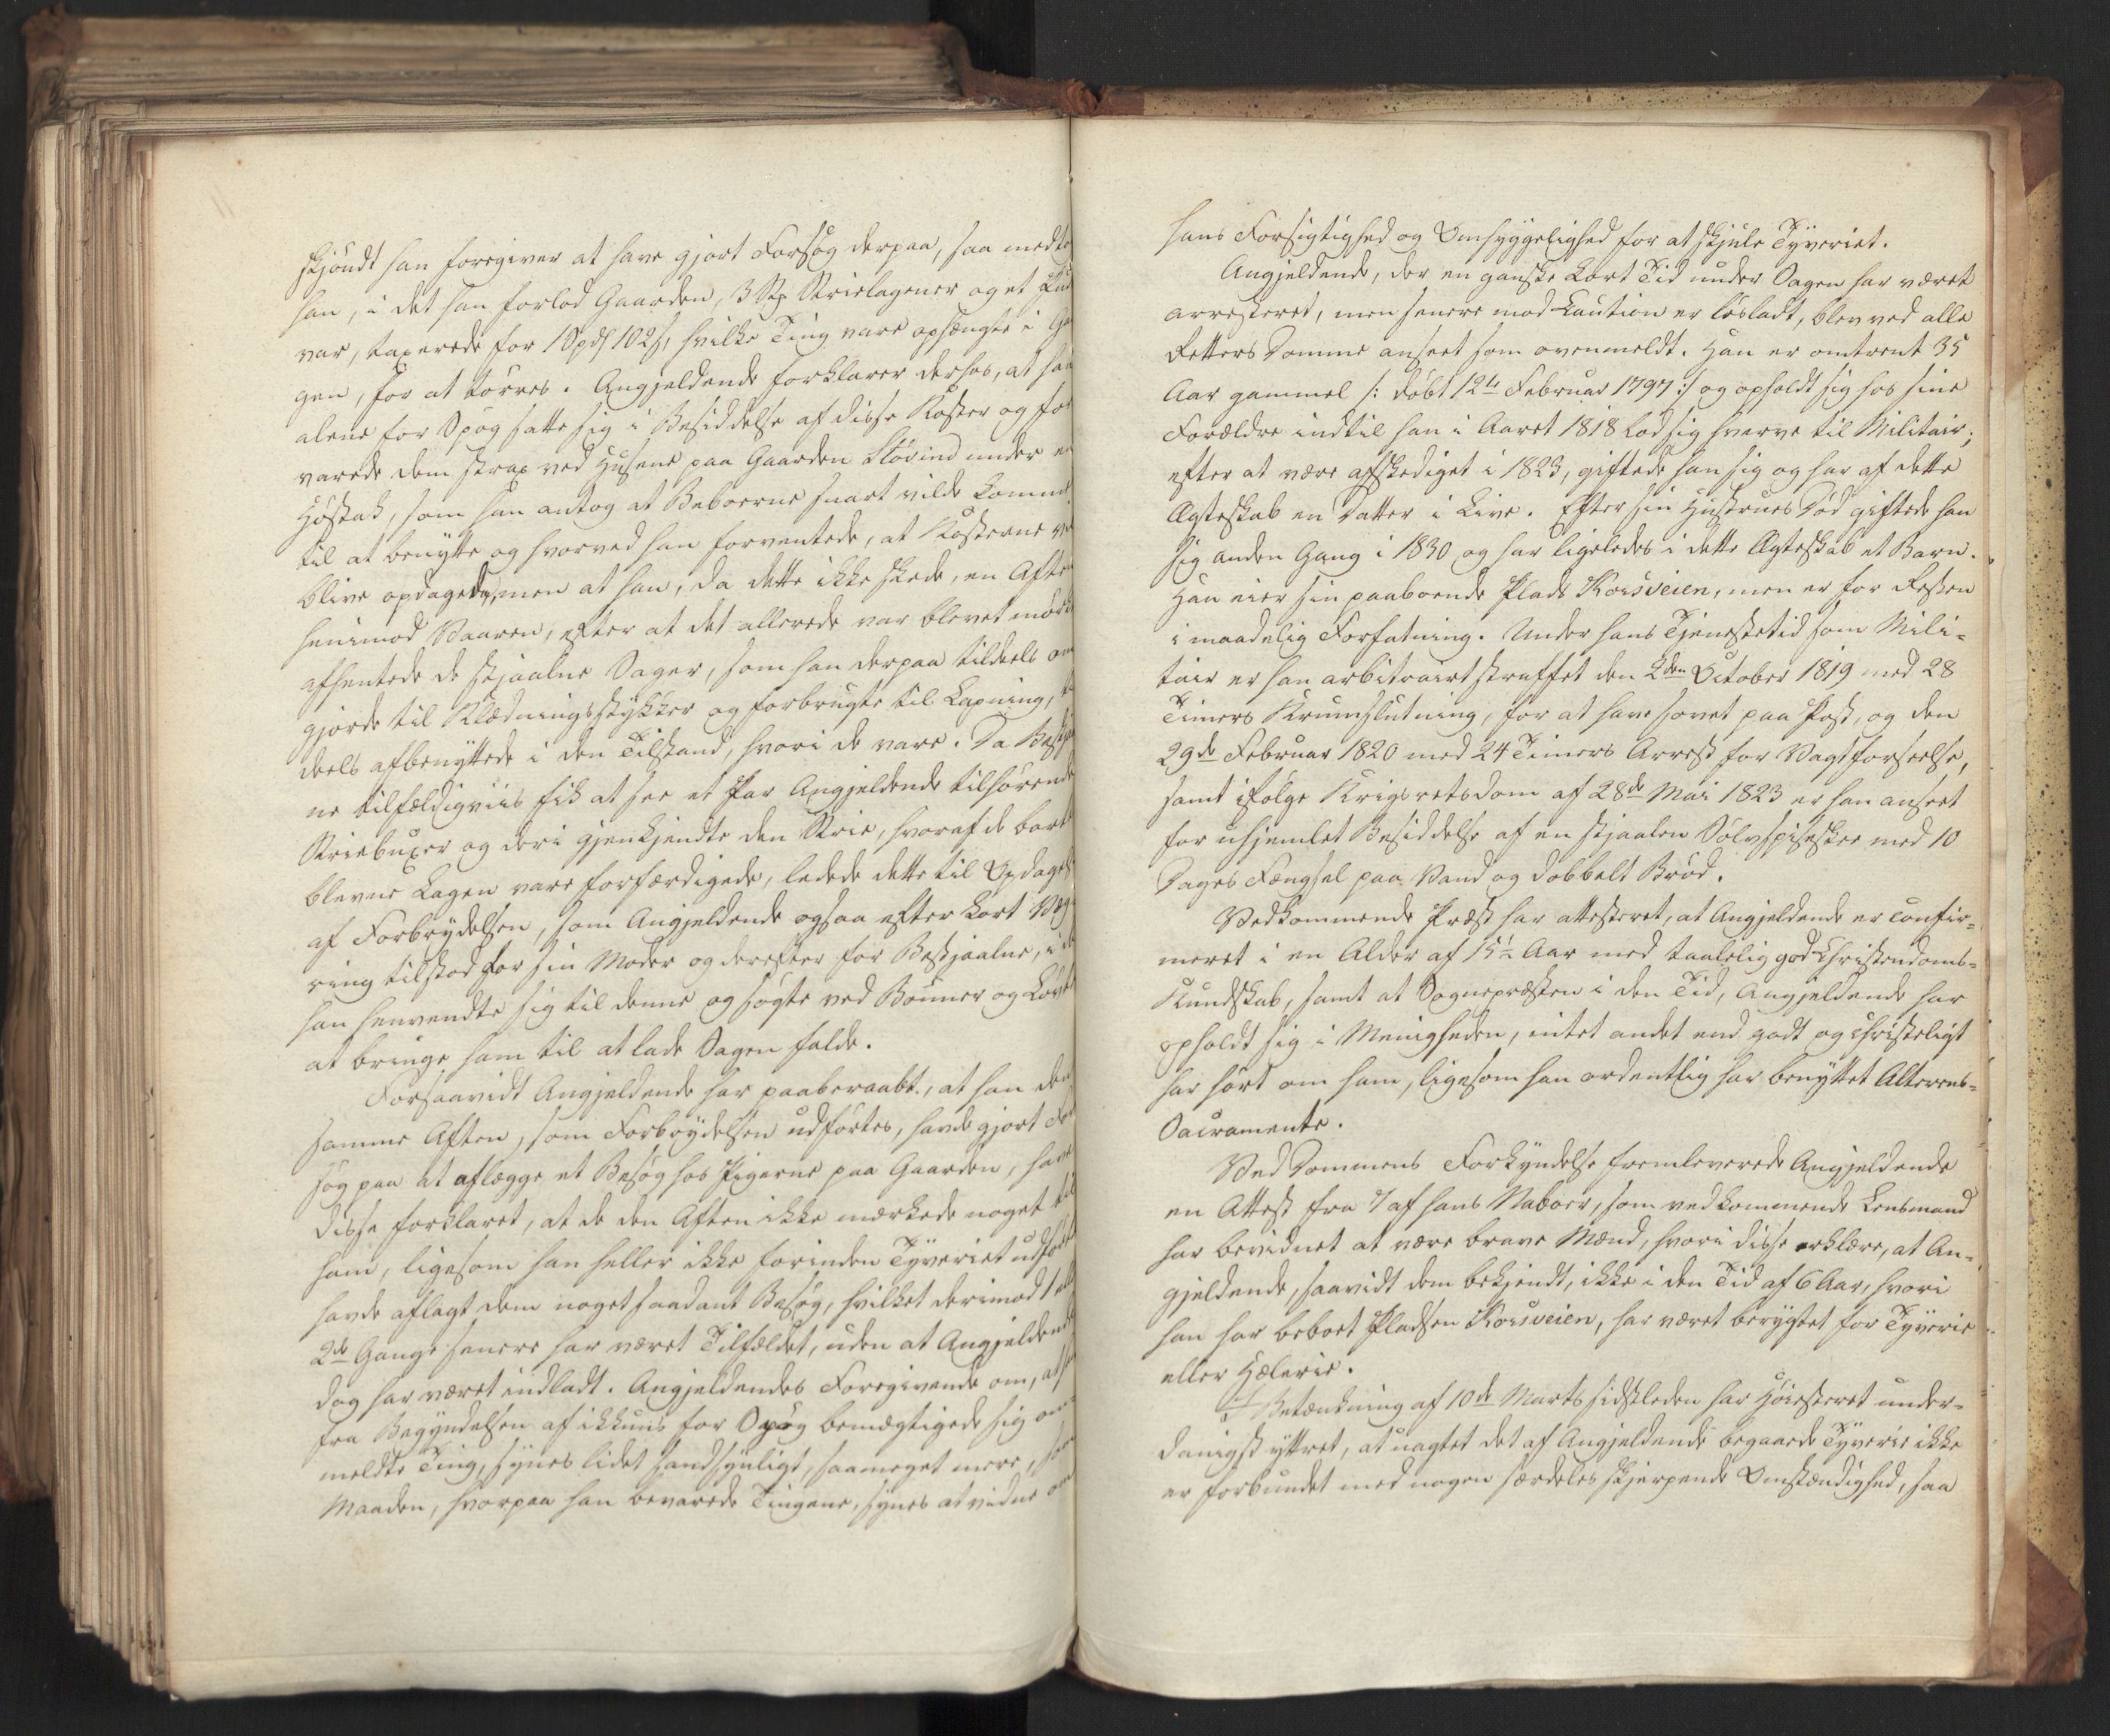 skjöndt han foregiver at have gjort Forsög derpaa, saa medtog
han, i det han forlod Gaarden, 3 Stk Strielagener og et Pude-
var, taxerede for 1 Spd 102 s, hvilke Ting vare ophængte i Gan-
gen, for at törres. Angjeldende forklarer derhos, at han
alene for Spög satte sig i Besiddelse af disse Koster og for-
varede dem strax ved Husene paa Gaarden Stövind under en
Höstak, som han antog at Beboerne snart vilde komme
til at benytte og hvorved han forventede, at Kosterne vilde
blive opdagede, men at han, da dette ikke skede, en Aften
henimod Vaaren, efter at det allerede var blevet mörkt
afhentede de stjaalne Sager, som han derpaa tildeels om-
gjorde til Klædningsstykker og forbrugte til Lapning, til-
deels afbenyttede i den Tilstand, hvori de vare. Da Bestjaal-
ne tilfældigviis fik at see et Par Angjeldende tilhörende
Striebuxer og deri gjenkjendte den Strie, hvoraf de bort-
blevne Lagen vare forfærdigede, ledede dette til Opdagelse
af Forbrydelsen, som Angjeldende ogsaa efter kort Væg-
ring tilstod for sin Moder og derefter for Bestjaalne, i det
han henvendte sig til denne og sögte ved Bönner og Löfter
at bringe ham til at lade Sagen falde.
Forsaavidt Angjeldende har paaberaabt, at han den
samme Aften, som Forbrydelsen udförtes, havde gjort For-
sög paa at aflægge et Besög hos Pigerne paa Gaarden, have
disse forklaret, at de den Aften ikke mærkede noget til
ham, ligesom han heller ikke forinden Tyveriet udförtes
havde aflagt dem noget saadant Besög, hvilket derimod 1 eller
2de Gange senere har været Tilfældet, uden at Angjeldende
dog har været indladt. Angjeldendes Foregivende om, at han
fra Begyndelsen af ikkuns for Spög bemægtigede sig om-
meldte Ting, synes lidet sandsynligt, saameget mere, som
Maaden, hvorpaa han bevarede Tingene, synes at vidne om
hans Forsigtighed og Omhyggelighed for at skjule Tyveriet.
Angjeldende, der en ganske kort Tid under Sagen har været
arresteret, men senere mod Caution er lösladt, blev ved alle
Retters Domme anseet som ovenmeldt. Han er omtrent 35
Aar gammel /: döbt 12te Februar 1797 :/ og opholdt sig hos sine
Forældre indtil han i Aaret 1818 lod sig hverve til Militair;
efter at være afskediget i 1823, giftede han sig og har af dette
Ægteskab en Datter i Live. Efter sin Hustrues Död giftede han
sig anden Gang i 1830 og har ligeledes i dette Ægteskab et Barn.
Han eier sin paaboende Plads Korsveien, men er for Resten
i maadelig Forfatning. Under hans Tjenestetid som Mili-
tair er han arbitrairt straffet den 2den October 1819 med 28
Timers Krumslutning, for at have sovet paa Post, og den
29de Februar 1820 med 24 Timers Arrest for Vagtforseelse,
samt ifölge Krigsretsdom af 28de Mai 1823 er han anseet
for uhjemlet Besiddelse af en stjaalen Sölvspiseskee med 10
Dages Fængsel paa Vand og dobbelt Bröd.
Vedkommende Præst har attesteret, at Angjeldende er confir-
meret i en Alder af 15½ Aar med taalelig god Christendoms-
Kundskab, samt at Sognepræsten i den Tid, Angjeldende har
opholdt sig i Menigheden, intet andet end godt og christeligt
har hört om ham, ligesom han ordentlig har benyttet Alterens-
Sacramente.
Ved Dommens Forkyndelse fremleverede Angjeldende
en Attest fra 7 af hans Naboer, som vedkommende Lensmand
har bevidnet at være brave Mænd, hvori disse erklære, at An-
gjeldende, saavidt dem bekjendt, ikke i den Tid af 6 Aar, hvori
han har beboet Pladsen Korsveien, har været berygtet for Tyverie
eller Hælerie.
I Betænkning af 10de Marts sidstleden har Höiesteret under-
danigst yttret, at uagtet det af Angjeldende begaaede Tyverie ikke
er forbundet med nogen særdeles skjerpende Omstændighed, saa